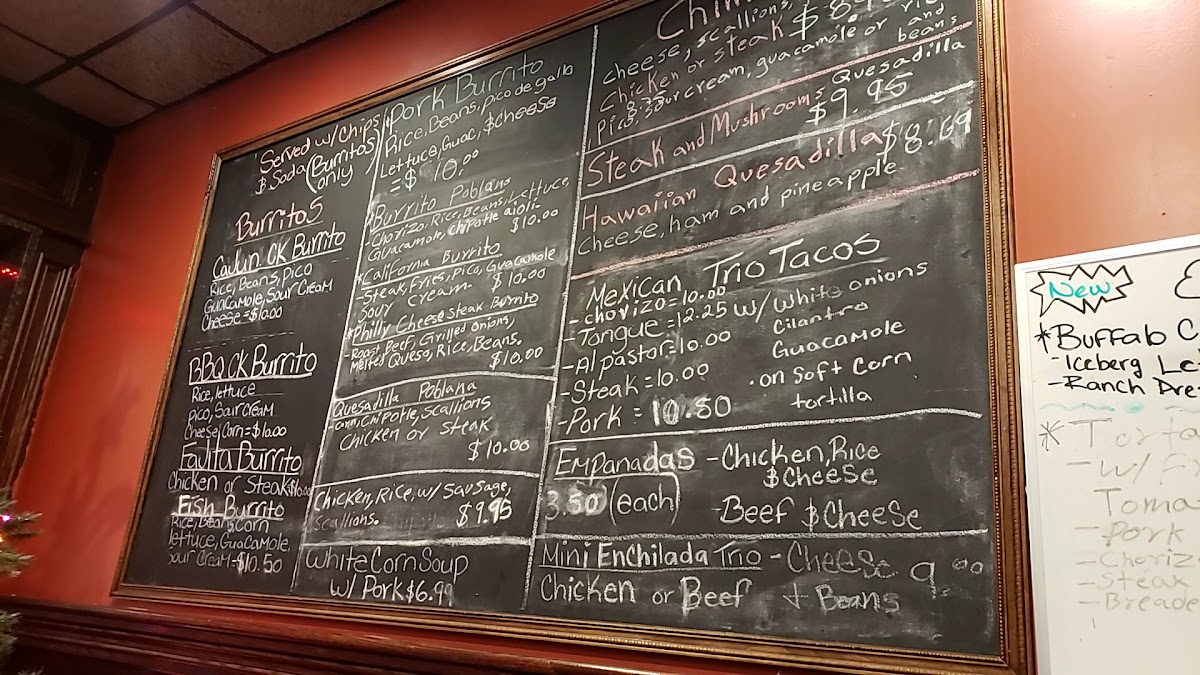 Served w/chips
$ Soda (Burritos
only)
Burritos
Cajun CK Burrito
Rice, Beans, Pico
Guacamole, Sour Cream
Cheese = $10.00
BBQ CK Burrito
Rice, lettuce
Pico, Sour cream
Cheese, Corn = $10.00
Fajita Burrito
Chicken or Steak $10.00
Fish Burrito
Rice, Bean, Corn
lettuce, Guacamole,
sour cream = $10.50
Pork Burrito
Rice, Beans, pico de gallo
Lettuce, Guac, $cheese
= $ 10.00
*Burrito Poblano
Chorizo, Rice, Beans, Lettuce,
Guacamole, chipotle aioli-
$10.00
*California Burrito
-Steak, Fries, Pico, Guacamole
Sour cream. $10.00
*Philly Cheesesteak Burrito
-Roast Beef, Grilled onions,
Melted Queso, Rice, Beans.
$10.00
Quesadilla Poblana
Chipotle, Scallions
Chicken or Steak
$10.00
Chicken, Rice, w/ Sausage,
Scallions. $9.95
White Corn Soup
w/ Pork $6.99
Chim
cheese, scallions,
Chicken or steak $8.
8.75
Pico, sour cream, guacamole or rice and
beans
Steak and Mushrooms Quesadilla
$9.95
Hawaiian Quesadilla $8.69
cheese, ham and pineapple
Mexican Trio Tacos
-chorizo = 10.00
-Tongue = 12.25 w/ white onions
-Al pastor = 10.00 cilantro
-Steak = 10.00 Guacamole
-Pork = 10.50 • on Soft Corn
tortilla
Empanadas - Chicken, Rice
$Cheese
3.50 (each) - Beef $Cheese
Mini Enchilada Trio - Cheese 9.00
Chicken or Beef + Beans
New
*Buffalo C
-Iceberg Le
-Ranch Dre
*Torta
- w/ F
Toma
- Pork
- Choriz
- Steak
- Breade